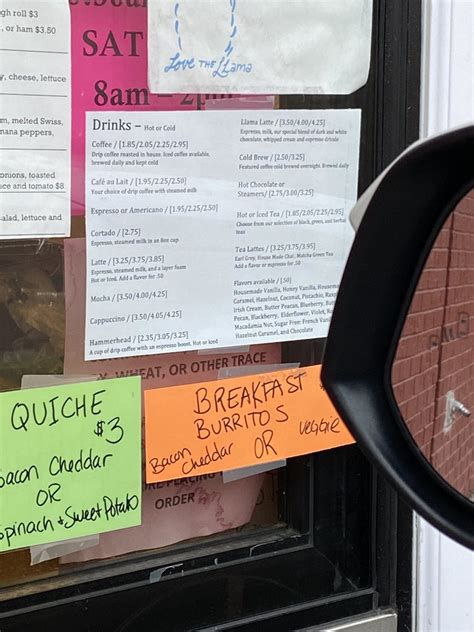 gh roll $3
, or ham $3.50
y, cheese, lettuce
, melted Swiss,
nana peppers,
toasted
uce and tomato $8
salad, lettuce and
SAT
8am –
Love THE LLama
Drinks – Hot or Cold
Coffee / [1.85/2.05/2.25/2.95]
Drip coffee roasted in house. Iced coffee available,
brewed daily and kept cold
Café au Lait / [1.95/2.25/2.50]
Your choice of drip coffee with steamed milk
Espresso or Americano / [1.95/2.25/2.50]
Cortado / [2.75]
Espresso, steamed milk in an 8oz cup
Latte / [3.25/3.75/3.85]
Espresso, steamed milk, and a layer foam
Hot or Iced. Add a flavor for .50
Mocha / [3.50/4.00/4.25]
Cappuccino / [3.50/4.05/4.25]
Hammerhead / [2.35/3.05/3.25]
A cup of drip coffee with an espresso boost. Hot or Iced
Llama Latte / [3.50/4.00/4.25]
Espresso, milk, our special blend of dark and white
chocolate, whipped cream and espresso drizzle
Cold Brew / [2.50/3.25]
Featured coffee cold brewed overnight. Brewed daily
Hot Chocolate or
Steamers/ [2.75/3.00/3.25]
Hot or Iced Tea / [1.85/2.05/2.25/2.95]
Choose from our selection of black, green, and herbal
teas
Tea Lattes / [3.25/3.75/3.95]
Earl Grey, House Made Chai, Matcha Green Tea
Add a flavor or espresso for .50
Flavors available / [.50]
Housemade Vanilla, Honey Vanilla, Housemade
Caramel, Hazelnut, Coconut, Pistachio,
Irish Cream, Butter Pecan, Blueberry,
Pecan, Blackberry, Elderflower, Violet,
Macadamia Nut, Sugar Free: French Vanilla
Hazelnut Caramel, and Chocolate
WHEAT, OR OTHER TRACE
ORDER
QUICHE
$3
Bacon Cheddar
OR
Spinach + Sweet Potato
BREAKFAST
BURRITOS
Bacon Cheddar OR veggie